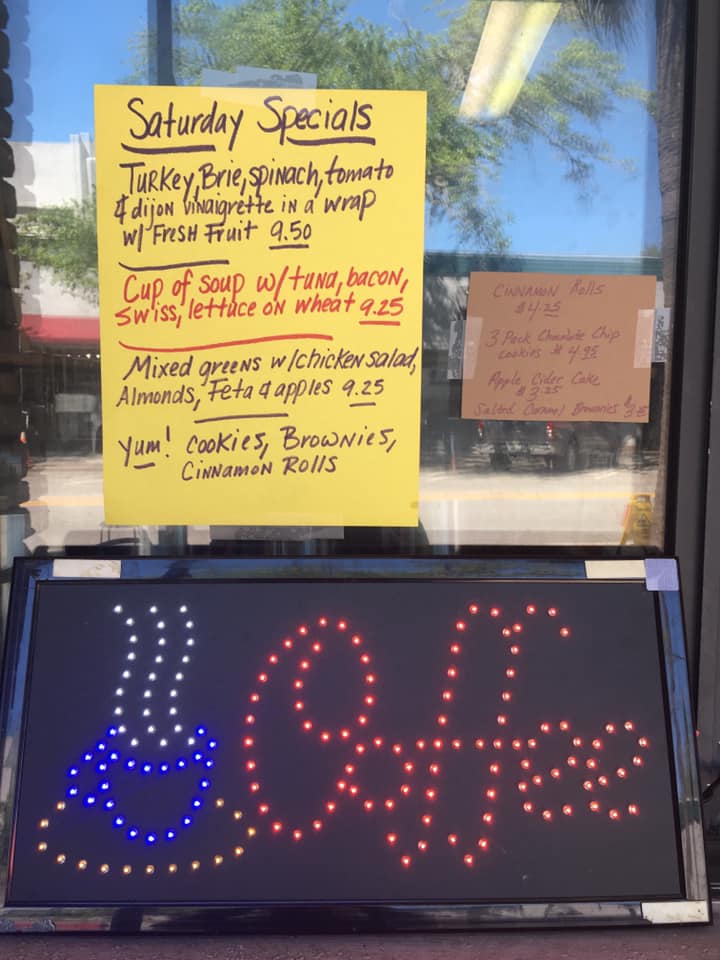 Saturday Specials
Turkey, Brie, spinach, tomato
& dijon vinaigrette in a wrap
w/ Fresh Fruit 9.50
Cup of soup w/ tuna, bacon,
swiss, lettuce on wheat 9.25
Mixed greens w/chicken salad,
Almonds, Feta & apples 9.25
Yum! cookies, Brownies,
Cinnamon Rolls
Cinnamon Rolls
$4.25
3 Pack Chocolate Chip
cookies $4.95
Apple Cider Cake
$3.25
Salted Caramel Brownies
Coffee